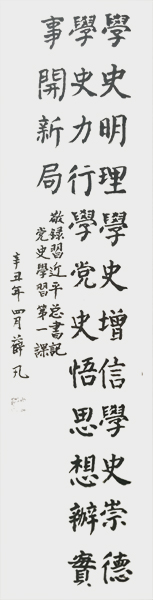 學史明理學史增信學史崇德
學史力行學党史悟思想辦實
事開新局
敬録習近平总書記
党史學習第一課
辛丑年四月薛凡